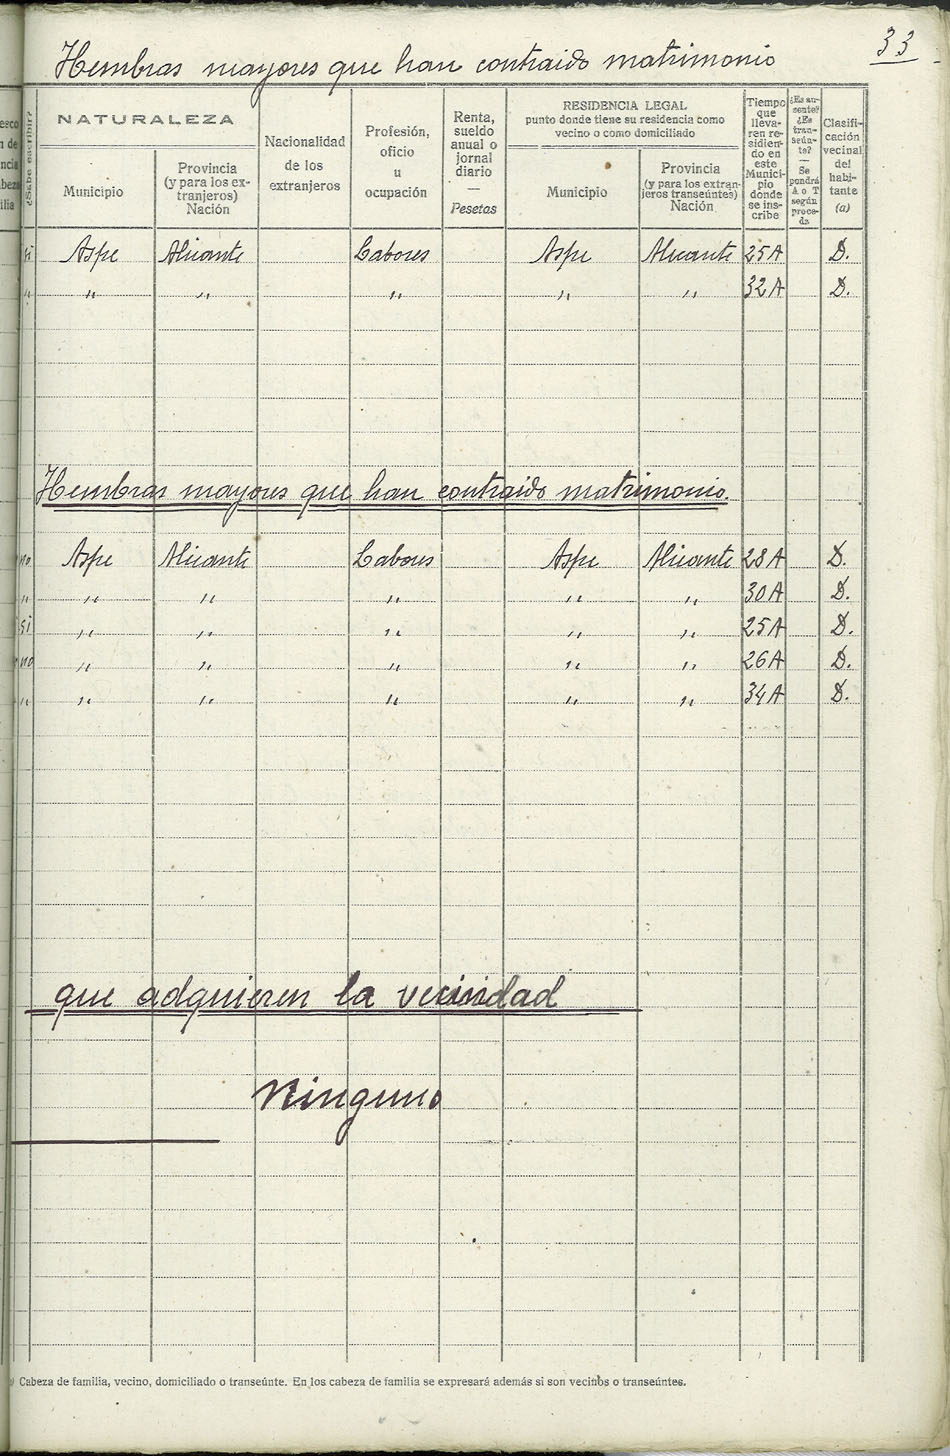 33
Hembras mayores que han contraido matrimonio
¿Sabe escribir?
NATURALEZA
Municipio
Provincia
(y para los ex-
tranjeros)
Nación
Nacionalidad
de los
extranjeros
Profesión,
oficio
u
ocupación
Renta,
sueldo
anual o
jornal
diario
—
Pesetas
RESIDENCIA LEGAL
punto donde tiene su residencia como
vecino o como domiciliado
Municipio
Provincia
(y para los extran-
jeros transeúntes)
Nación
Tiempo
que
lleva-
ren re-
sidien-
do en
este
Munici-
pio
donde
se ins-
cribe
¿Es au-
sente?
¿Es
tran-
seún-
te?
—
Se
pondrá
A o T
según
proce-
da
Clasifi-
cación
vecinal
del
habi-
tante
(a)
si Aspe Alicante Labores Aspe Alicante 25 A D.
" " " " " " 32 A D.
Hembras mayores que han contraido matrimonio.
no Aspe Alicante Labores Aspe Alicante 28 A D.
" " " " " " 30 A D.
si " " " " " 25 A D.
no " " " " " 26 A D.
" " " " " " 34 A D.
que adquieren la vecindad
Ninguno
Cabeza de familia, vecino, domiciliado o transeúnte. En los cabeza de familia se expresará además si son vecinos o transeúntes.